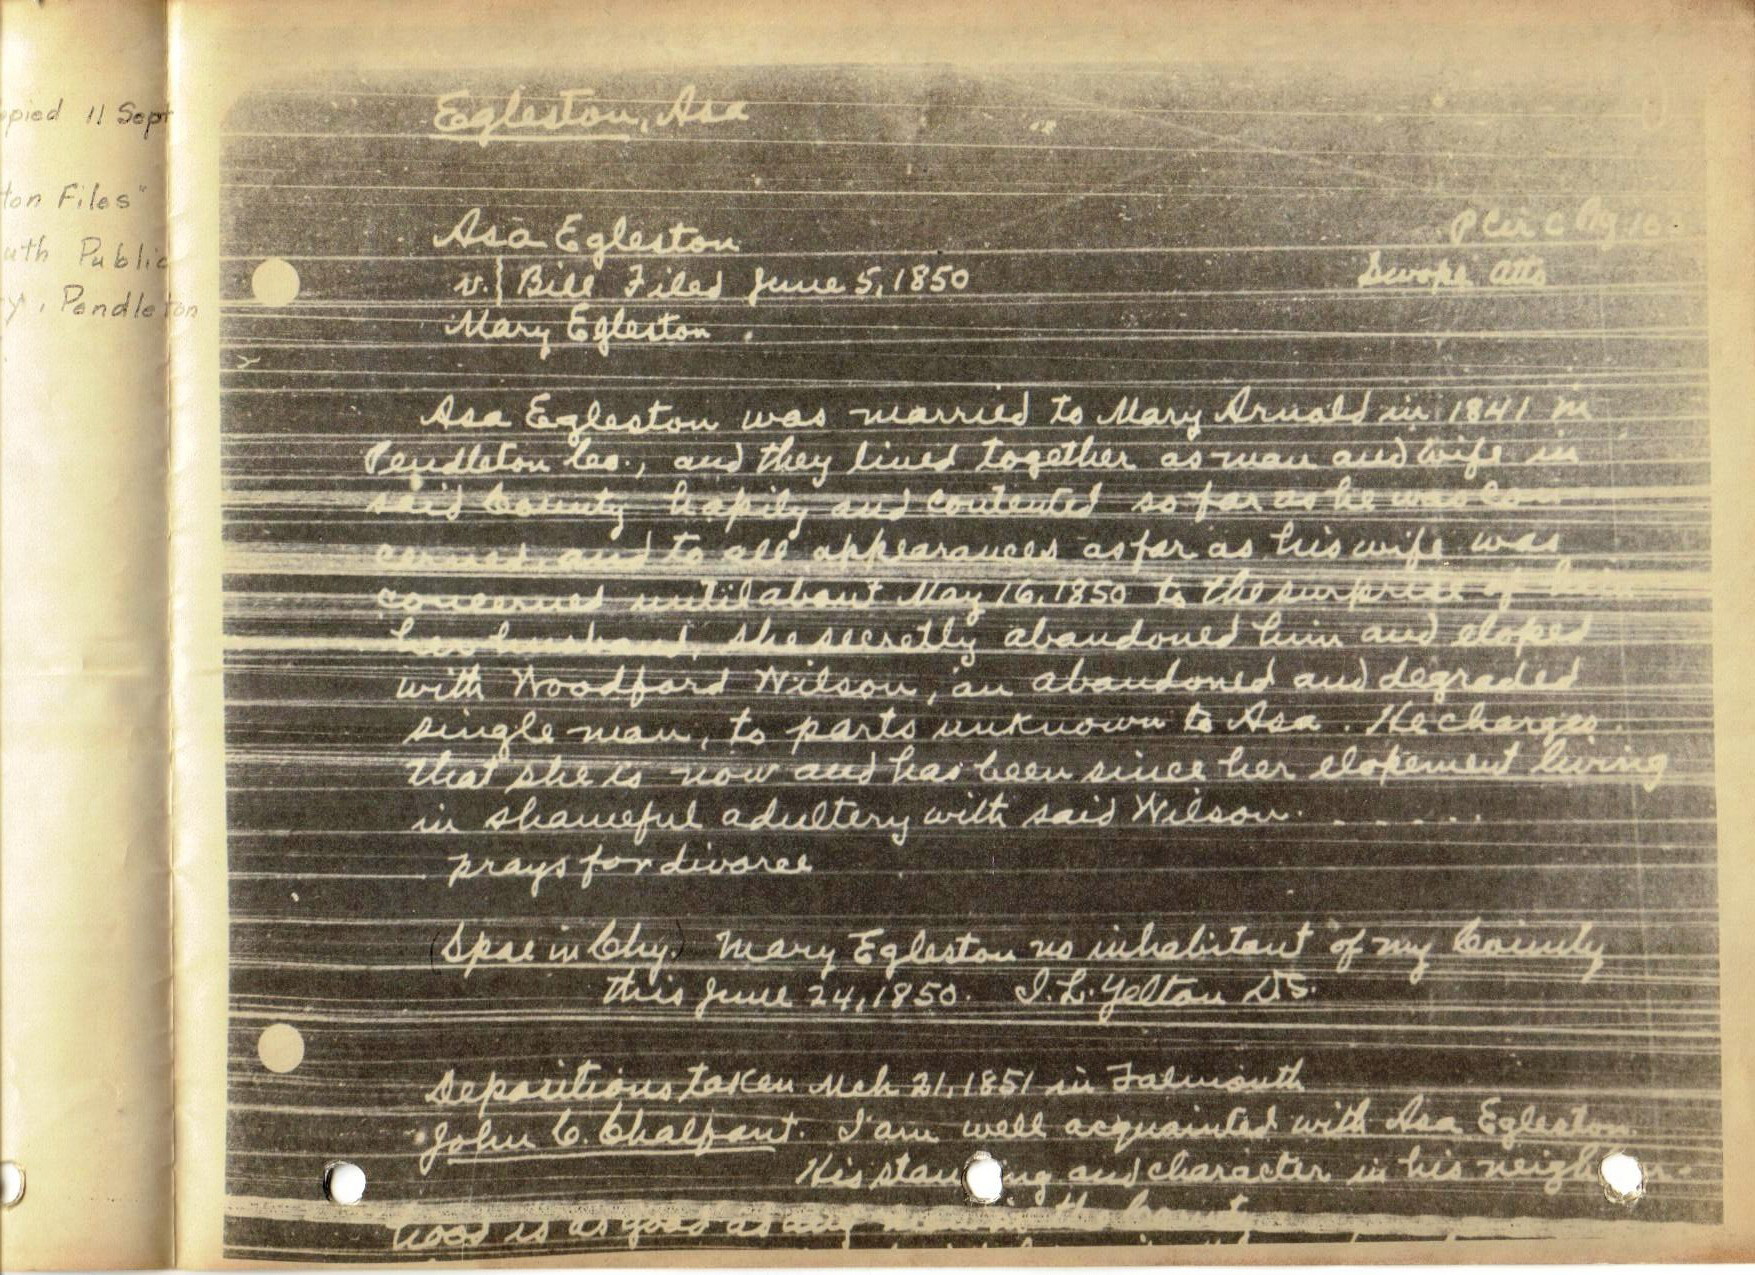 opied 11 Sept
ton Files"
uth Public
y, Pendleton
Egleston, Asa
P Cir C Pg 10
Asa Egleston
v. } Bill Filed June 5, 1850
Swope Atts
Mary Egleston.
Asa Egleston was married to Mary Arnold in 1841 in
Pendleton Co., and they lived together as man and wife in
said County hapily and contented so far as he was con
cerned, and to all appearances as far as his wife was
concerned until about May 16, 1850 to the surprise of him
her husband, she secretly abandoned him and eloped
with Woodford Wilson, an abandoned and degraded
single man, to parts unknown to Asa. He charges
that she is now and has been since her elopement living
in shameful adultery with said Wilson. - - - - - -
prays for divorce
(Spae in Chy.) Mary Egleston no inhabitant of my County
this June 24, 1850. I. L. Yelton D.S.
Depositions taken Mch 21, 1851 in Falmouth
John C. Chalfant. I am well acquainted with Asa Egleston.
His standing and character in his neighbor-
hood is as good as any man in the County